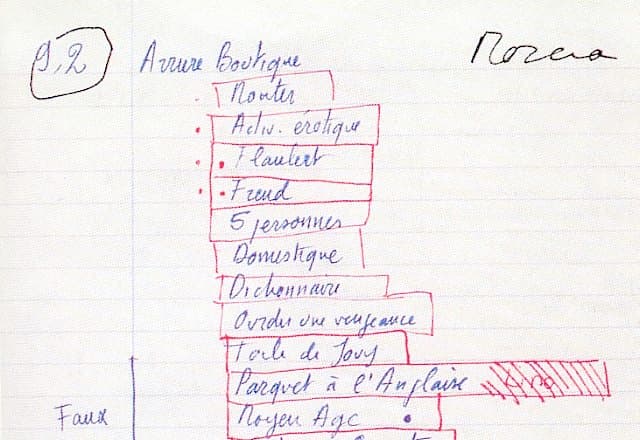 9,2 Arrière Boutique Moreau
Monter
Activ. érotique
Flaubert
Freud
5 personnes
Domestique
Dictionnaire
Ourdir une vengeance
Toile de Jouy
Parquet à l'Anglaise
Faux Moyen Age